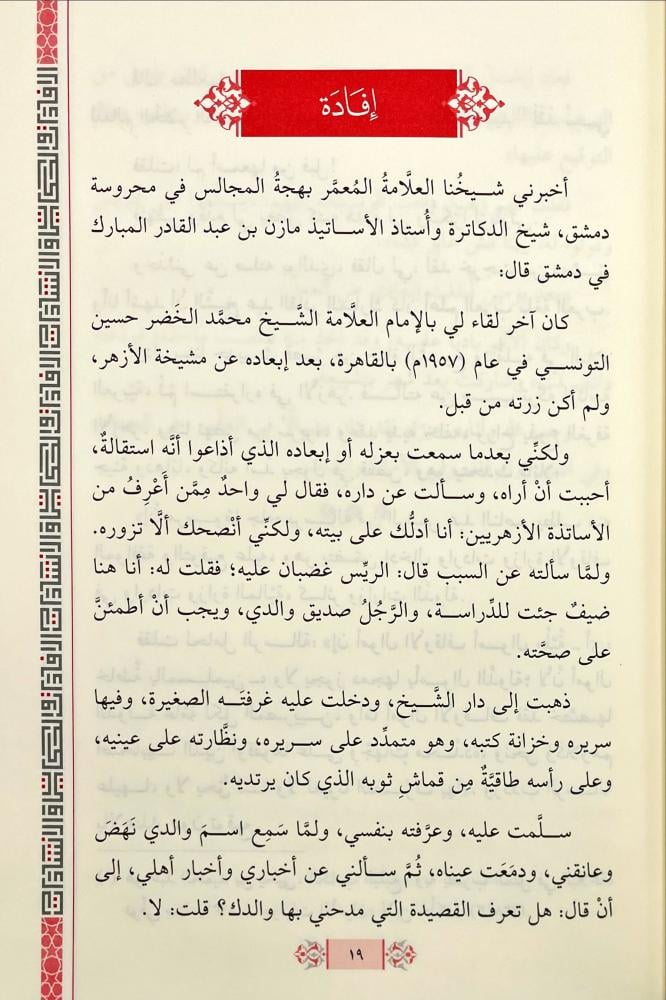 إفَادَة
أخبرني شيخُنا العلَّامةُ المُعمَّر بهجةُ المجالس في محروسة
دمشق، شيخ الدكاترة وأُستاذ الأساتيذ مازن بن عبد القادر المبارك
في دمشق قال:
كان آخر لقاء لي بالإمام العلَّامة الشَّيخ محمَّد الخَضر حسين
التونسي في عام (١٩٥٧م) بالقاهرة، بعد إبعاده عن مشيخة الأزهر،
ولم أكن زرته من قبل.
ولكنِّي بعدما سمعت بعزله أو إبعاده الذي أذاعوا أنَّه استقالةٌ،
أحببت أنْ أراه، وسألت عن داره، فقال لي واحدٌ مِمَّن أَعْرِفُ من
الأساتذة الأزهريين: أنا أدلُّك على بيته، ولكنِّي أنْصحك ألَّا تزوره.
ولمَّا سألته عن السبب قال: الريِّس غضبان عليه؛ فقلت له: أنا هنا
ضيفٌ جئت للدِّراسة، والرَّجُلُ صديق والدي، ويجب أنْ أطمئنَّ
على صحَّته.
ذهبت إلى دار الشَّيخ، ودخلت عليه غرفتَه الصغيرة، وفيها
سريره وخزانة كتبه، وهو متمدِّد على سريره، ونظَّارته على عينيه،
وعلى رأسه طاقيَّةٌ مِن قماشِ ثوبه الذي كان يرتديه.
سلَّمت عليه، وعرَّفته بنفسي، ولمَّا سَمِع اسمَ والدي نَهَضَ
وعانقني، ودمَعَت عيناه، ثُمَّ سألني عن أخباري وأخبار أهلي، إلى
أنْ قال: هل تعرف القصيدة التي مدحني بها والدك؟ قلت: لا.
١٩